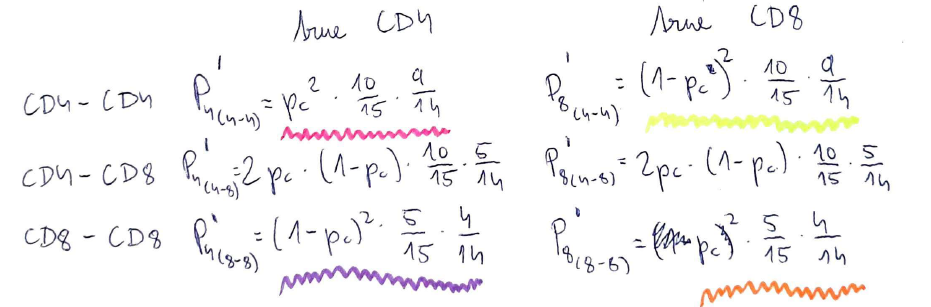 true CD4 true CD8
CD4-CD4 P'₄₍₄₋₄₎ = pc² · 10/15 · 9/14 P'₈₍₄₋₄₎ = (1-pc)² · 10/15 · 9/14
CD4-CD8 P'₄₍₄₋₈₎ = 2 pc · (1-pc) · 10/15 · 5/14 P'₈₍₄₋₈₎ = 2pc · (1-pc) · 10/15 · 5/14
CD8-CD8 P'₄₍₈₋₈₎ = (1-pc)² · 5/15 · 4/14 P'₈₍₈₋₈₎ = pc² · 5/15 · 4/14